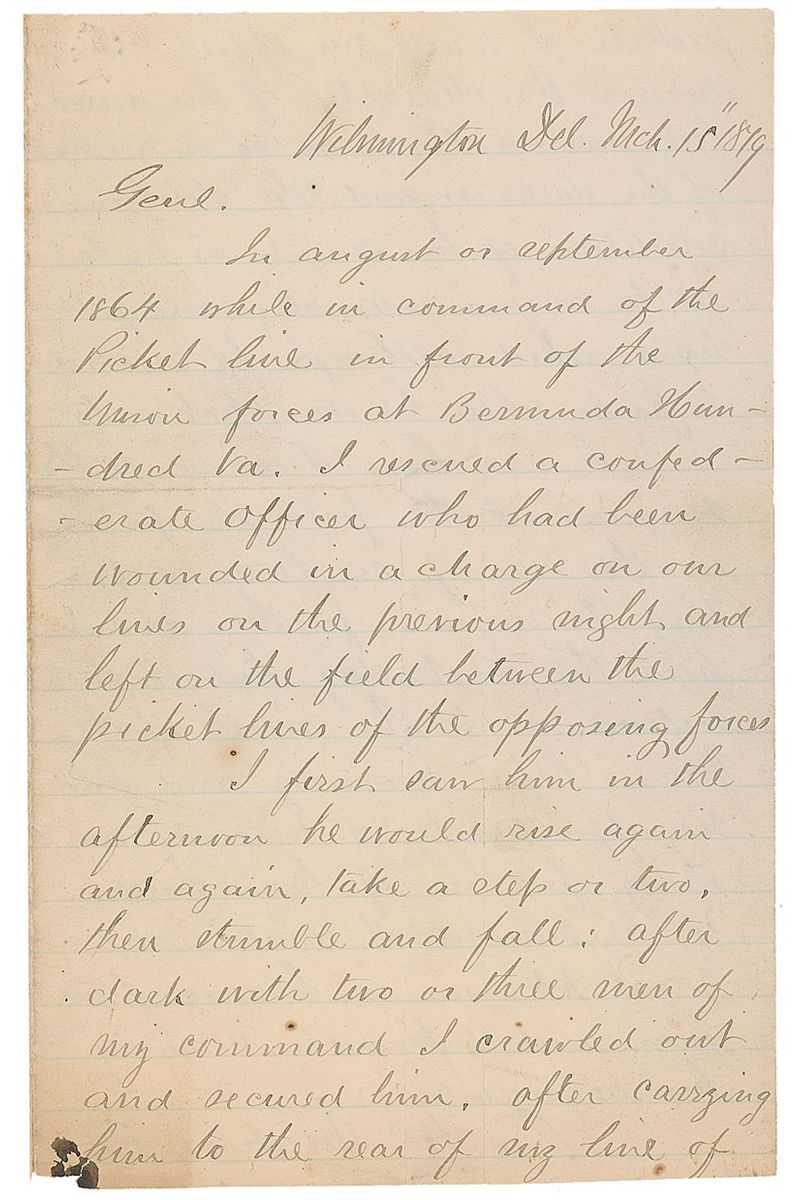 Wilmington Del. Mch. 15" 1879
Genl.
In august or september
1864 while in command of the
Picket line in front of the
Union forces at Bermuda Hun-
-dred Va. I rescued a confed-
-erate Officer who had been
wounded in a charge on our
lines on the previous night and
left on the field between the
picket lines of the opposing forces
I first saw him in the
afternoon he would rise again
and again, take a step or two,
then stumble and fall: after
dark with two or three men of
my command I crawled out
and secured him. after carrying
him to the rear of my line of